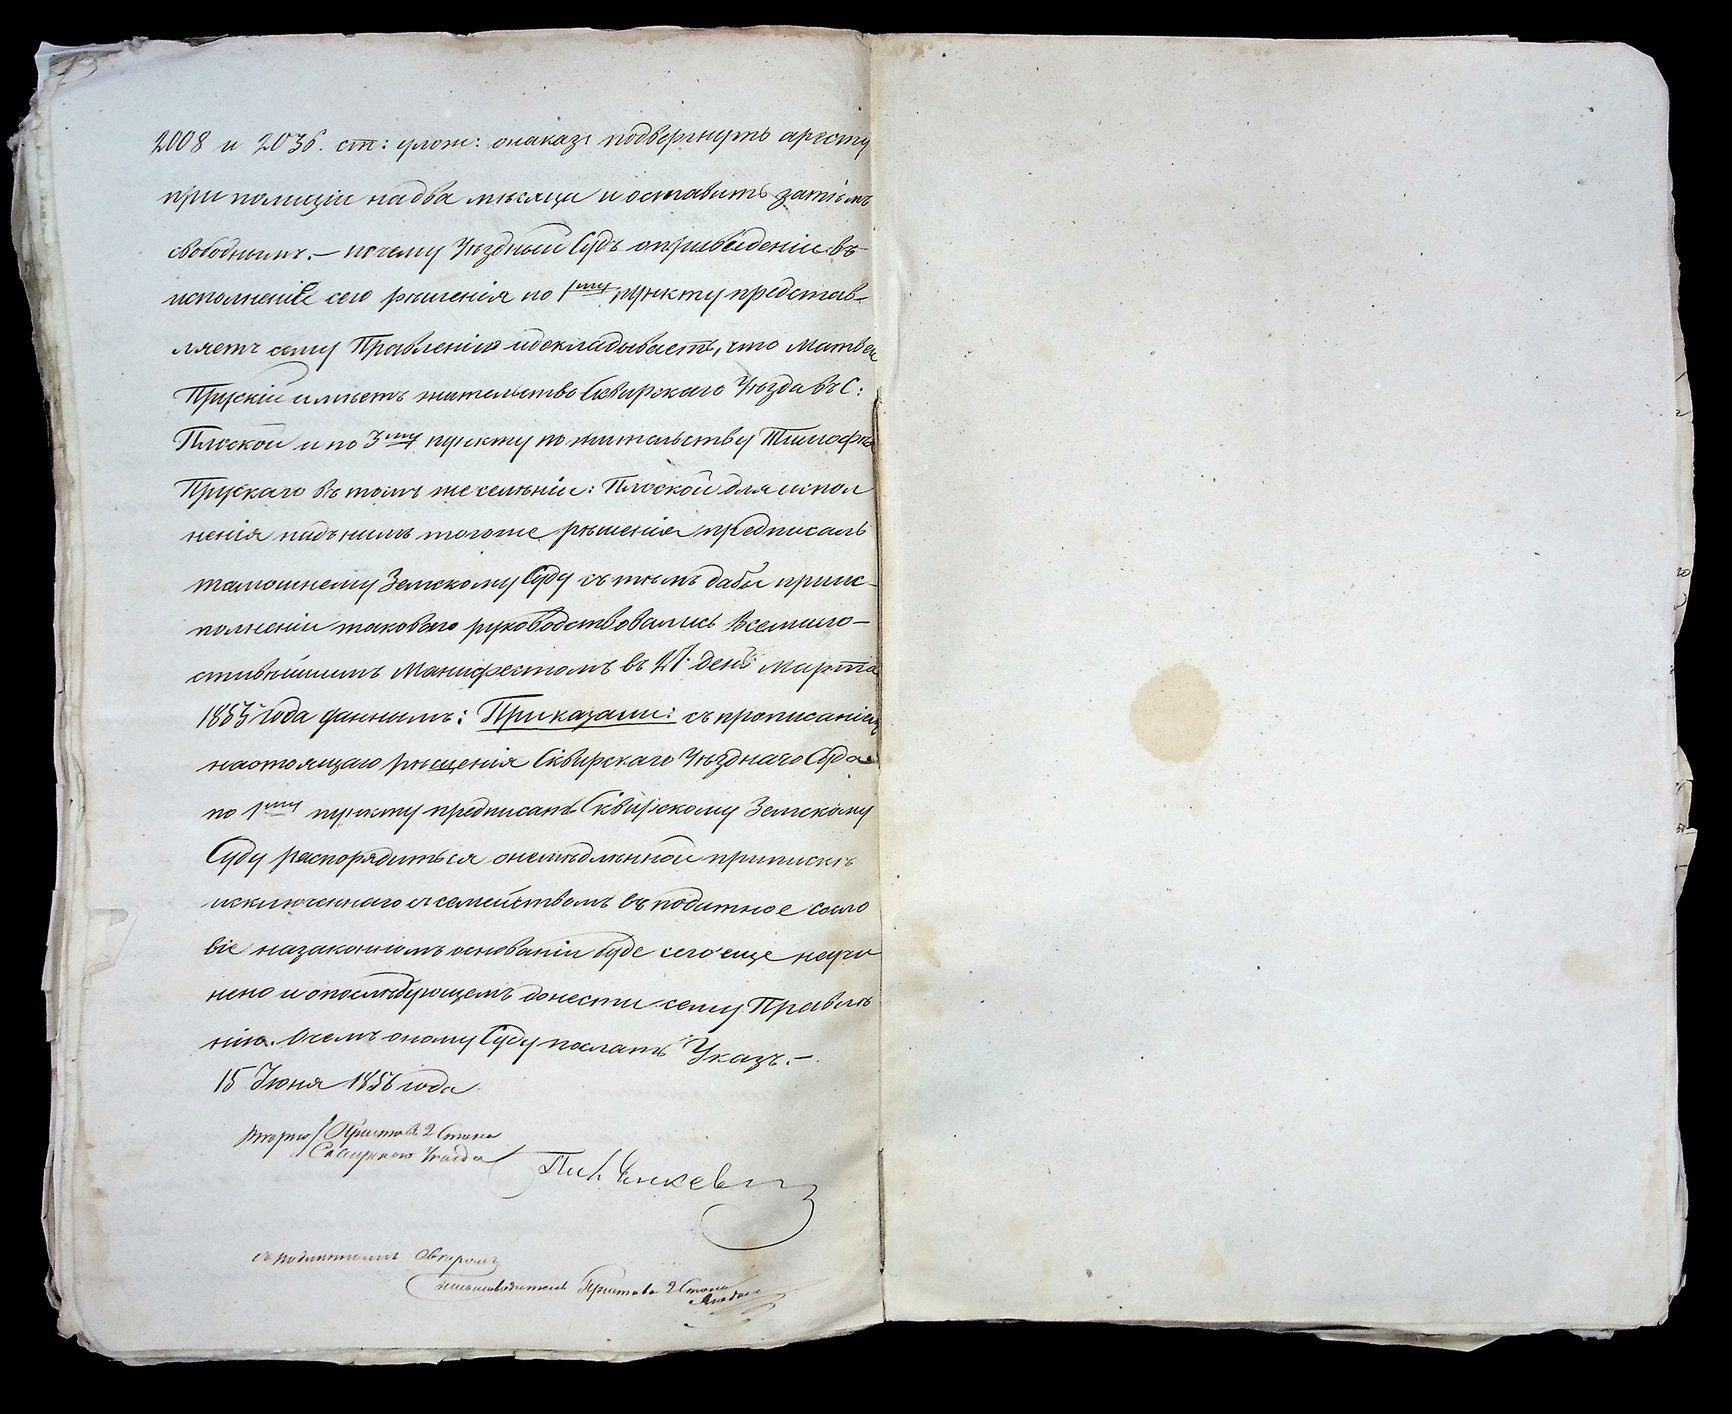 2008 и 2036. ст: улож: онаказ: подвергнуть аресту
при полиціи на два мѣсяца и оставить затѣмъ
свободнымъ. — почему Уѣздный Судъ оприведеніи въ
исполненіе сего рѣшенія по 1му пункту представ-
ляетъ сему Правленію идокладываетъ, что Матвей
Прускій имѣетъ жительство Сквирскаго Уѣзда въ С:
Плоской и по 3му пункту по жительству Тимофея
Прускаго въ томъ же селеніи: Плоской для испол
ненія надъ нимъ тогоже рѣшенія предписалъ
тамошнему Земскому Суду съ тѣмъ дабы приис-
полненіи таковаго руководствовались Всемило-
стивѣйшимъ Манифестомъ въ 27. день Марта
1855 года даннымъ: Приказали: съ прописаніемъ
настоящаго рѣшенія Сквирскаго Уѣзднаго Суда
по 1му пункту предписать Сквирскому Земскому
Суду распорядиться онемѣдленной припискѣ
исключеннаго съ семействомъ въ податное сосло
віе назаконномъ основаніи буде сего еще неучи
нено и опослѣдующемъ донести сему Правле
нію. Очемъ оному Суду послать Указъ. —
15 Іюня 1856 года
Приставъ 2 Стана
Сквирскаго Уѣзда
съ подлиннымъ свѣрялъ
Письмоводитель Пристава 2 Стана